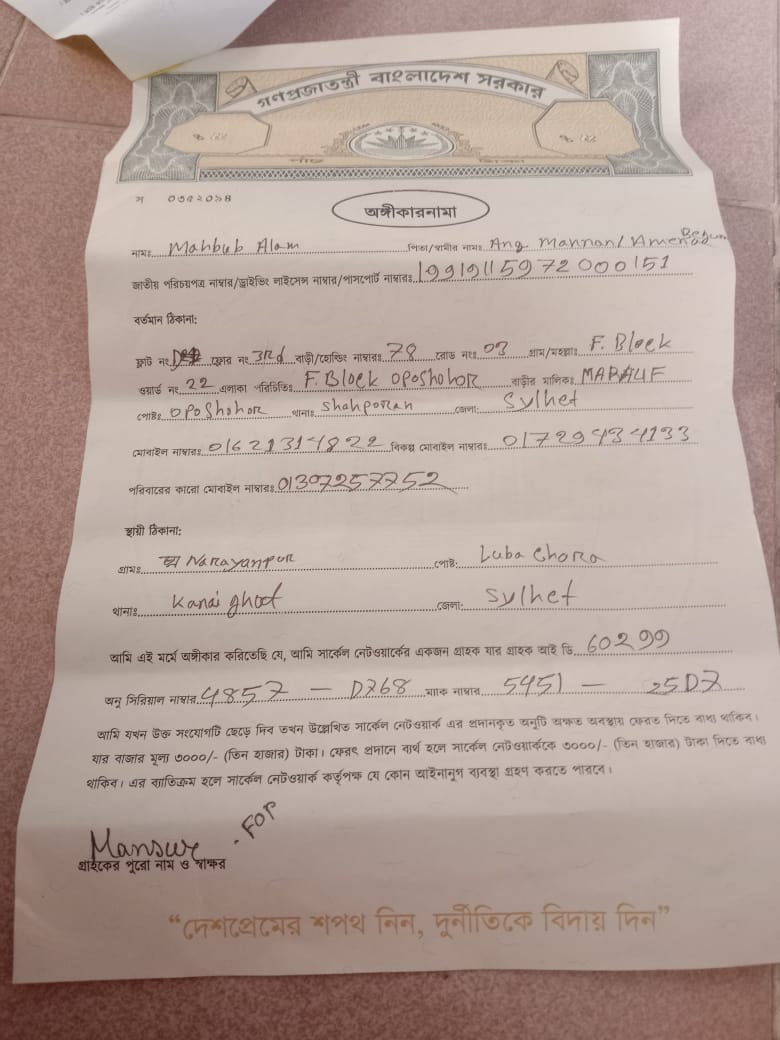 গণপ্রজাতন্ত্রী বাংলাদেশ সরকার
অঙ্গীকারনামা
নামঃ Mahbub Alam পিতা/স্বামীর নামঃ Ang. Mannan/ Amena Begum
জাতীয় পরিচয়পত্র নাম্বার/ড্রাইভিং লাইসেন্স নাম্বার/পাসপোর্ট নাম্বারঃ 19919115972000151
বর্তমান ঠিকানা:
ফ্লাট নং ফ্লোর নং 3Rd বাড়ী/হোল্ডিং নাম্বারঃ 78 রোড নংঃ 03 গ্রাম/মহল্লাঃ F. Block
ওয়ার্ড নং 22 এলাকা পরিচিতিঃ F. Block Oposhohor বাড়ীর মালিকঃ
পোষ্টঃ Oposhohor থানাঃ Shahporan জেলা: Sylhet
মোবাইল নাম্বারঃ 01621314822 বিকল্প মোবাইল নাম্বারঃ 01729434133
পরিবারের কারো মোবাইল নাম্বারঃ 01307257752
স্থায়ী ঠিকানা:
গ্রামঃ Narayanpur পোষ্ট: Luba Chora
থানাঃ Kanai ghat জেলা: Sylhet
আমি এই মর্মে অঙ্গীকার করিতেছি যে, আমি সার্কেল নেটওয়ার্কের একজন গ্রাহক যার গ্রাহক আই ডি 60299
অনু সিরিয়াল নাম্বার 4857 - D768 ম্যাক নাম্বার 5451 - 25D7
আমি যখন উক্ত সংযোগটি ছেড়ে দিব তখন উল্লেখিত সার্কেল নেটওয়ার্ক এর প্রদানকৃত অনুটি অক্ষত অবস্থায় ফেরত দিতে বাধ্য থাকিব।
যার বাজার মূল্য ৩০০০/- (তিন হাজার) টাকা। ফেরৎ প্রদানে ব্যর্থ হলে সার্কেল নেটওয়ার্ককে ৩০০০/- (তিন হাজার) টাকা দিতে বাধ্য
থাকিব। এর ব্যতিক্রম হলে সার্কেল নেটওয়ার্ক কর্তৃপক্ষ যে কোন আইনানুগ ব্যবস্থা গ্রহণ করতে পারবে।
Mansur . FOP
গ্রাহকের পুরো নাম ও স্বাক্ষর
“দেশপ্রেমের শপথ নিন, দুর্নীতিকে বিদায় দিন”